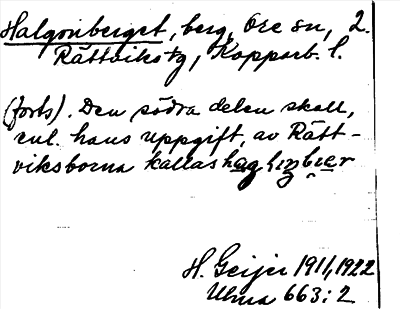 Halgonberget, berg, Ore sn, 2.
Rättvikstg, Kopparb. l.
(forts). Den södra delen skall,
enl. hans uppgift, av Rätt-
viksborna kallas
H. Geijer 1911, 1922
Ulma 663:2